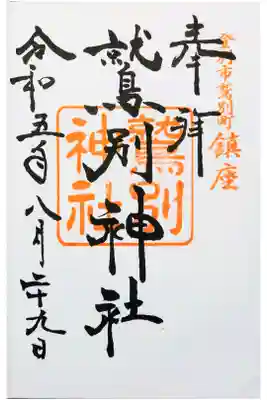 登別市鷲別町
鎮座
奉拝
鷲別神社
鷲別
神社
令和五年八月二十九日